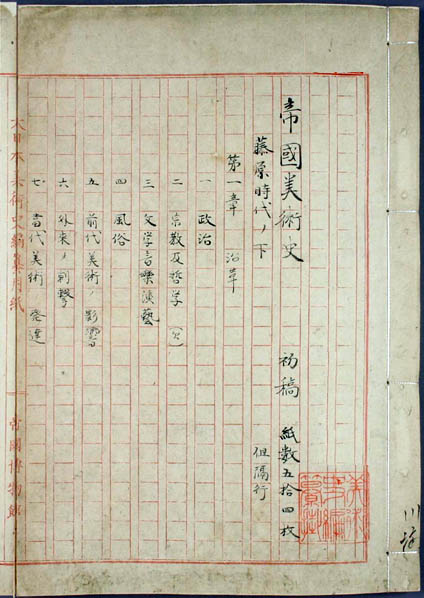 帝國美術史　初稿　紙数五拾四枚
藤原時代ノ下　但隔行
第一章　沿革
一　政治
二　宗教及哲学（欠）
三　文学音樂演藝
四　風俗
五　前代美術ノ影響
六　外來ノ刺撃
七　當代美術　発達
大日本美術史編纂用紙　帝國博物館